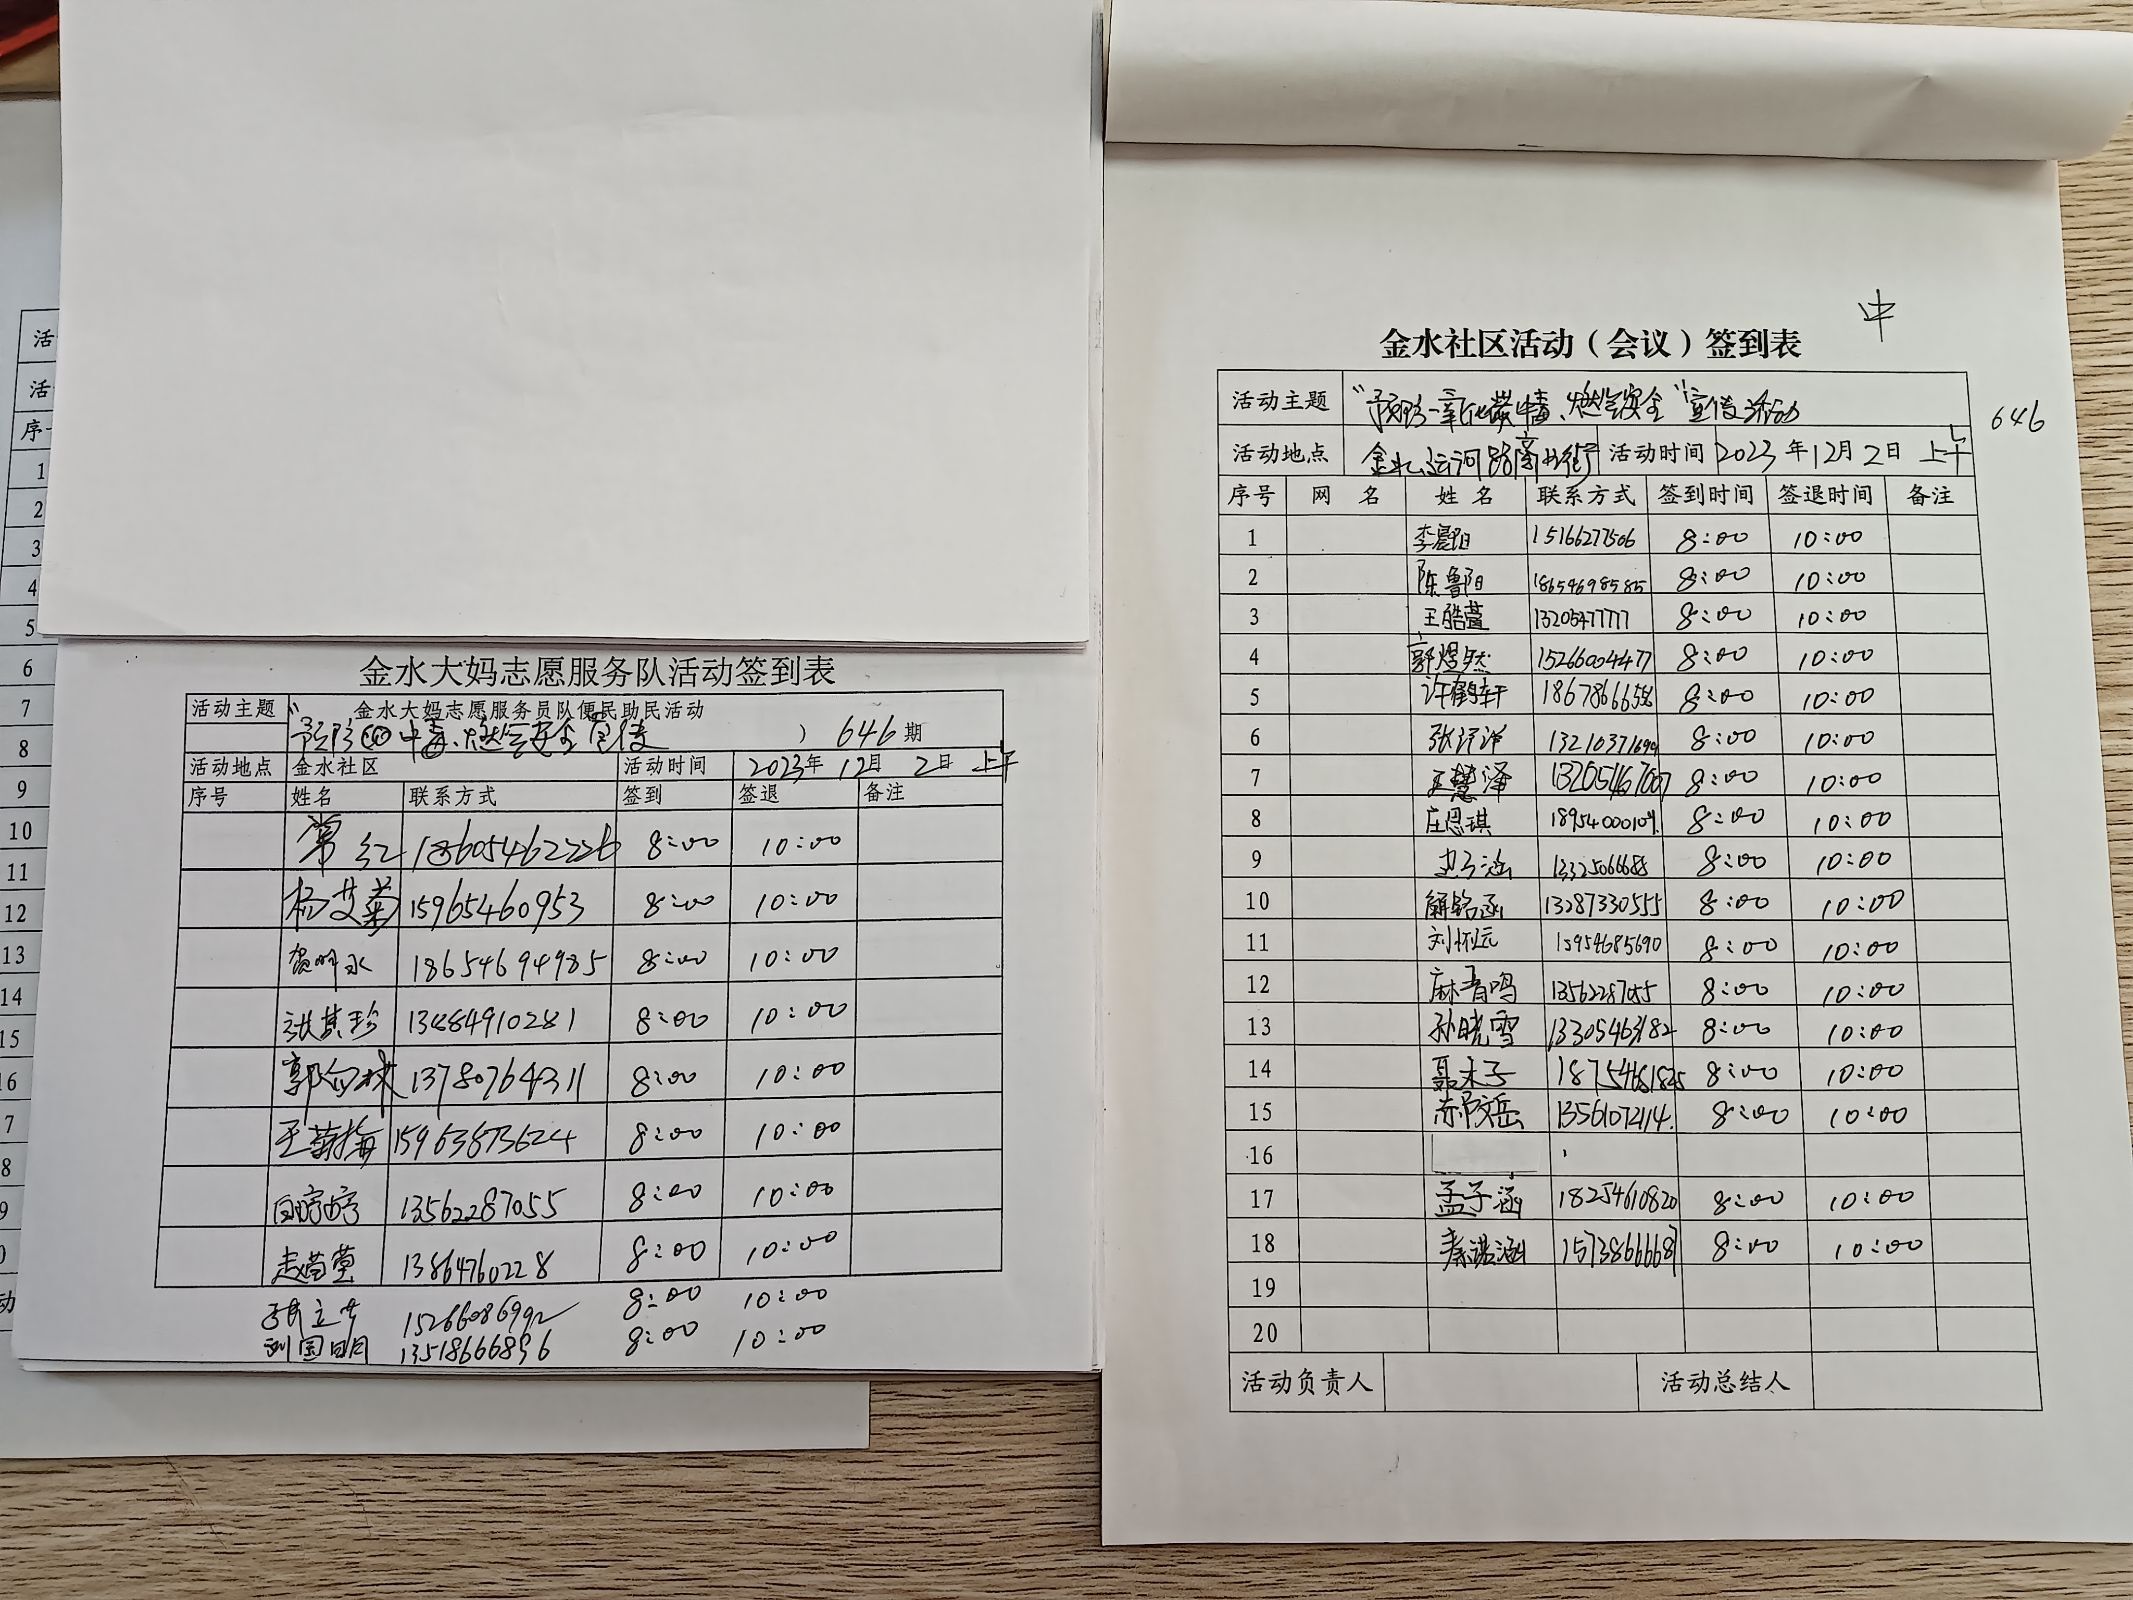 金水大妈志愿服务队活动签到表
活动主题 金水大妈志愿服务员队便民助民活动
预防CO中毒、燃气安全宣传 ) 646期
活动地点 金水社区 活动时间 2023年12月2日 上午
序号 姓名 联系方式 签到 签退 备注
常红 18605462226 8:00 10:00
杨艾菊 15965460953 8:00 10:00
18654694985 8:00 10:00
张其珍 13484910281 8:00 10:00
13780764311 8:00 10:00
王菊梅 15963873624 8:00 10:00
白婷婷 13562287055 8:00 10:00
13864760228 8:00 10:00
8:00 10:00
刘国明 13518666896 8:00 10:00
中
金水社区活动（会议）签到表
活动主题 “预防一氧化碳中毒、燃气安全”宣传活动
646
活动地点 金水运河路商业街 活动时间 2023年12月2日 上午
序号 网 名 姓 名 联系方式 签到时间 签退时间 备注
1 李震阳 15166277506 8:00 10:00
2 陈鲁阳 18654698585 8:00 10:00
3 王皓萱 13205477777 8:00 10:00
4 郭煜然 15266004477 8:00 10:00
5 许鹤轩 8:00 10:00
6 8:00 10:00
7 王慧泽 8:00 10:00
8 庄恩琪 8:00 10:00
9 史子涵 13325066688 8:00 10:00
10 解铭函 13287330555 8:00 10:00
11 刘怀远 15954685690 8:00 10:00
12 麻青鸣 13562287055 8:00 10:00
13 孙晓雪 13305463182 8:00 10:00
14 聂木子 18754681825 8:00 10:00
15 13561072114 8:00 10:00
16
17 孟子涵 18254610820 8:00 10:00
18 秦诺涵 15738666687 8:00 10:00
19
20
活动负责人 活动总结人
活
活
序
1
2
3
4
5
6
7
8
9
10
11
12
13
14
15
16
7
8
9
0
动